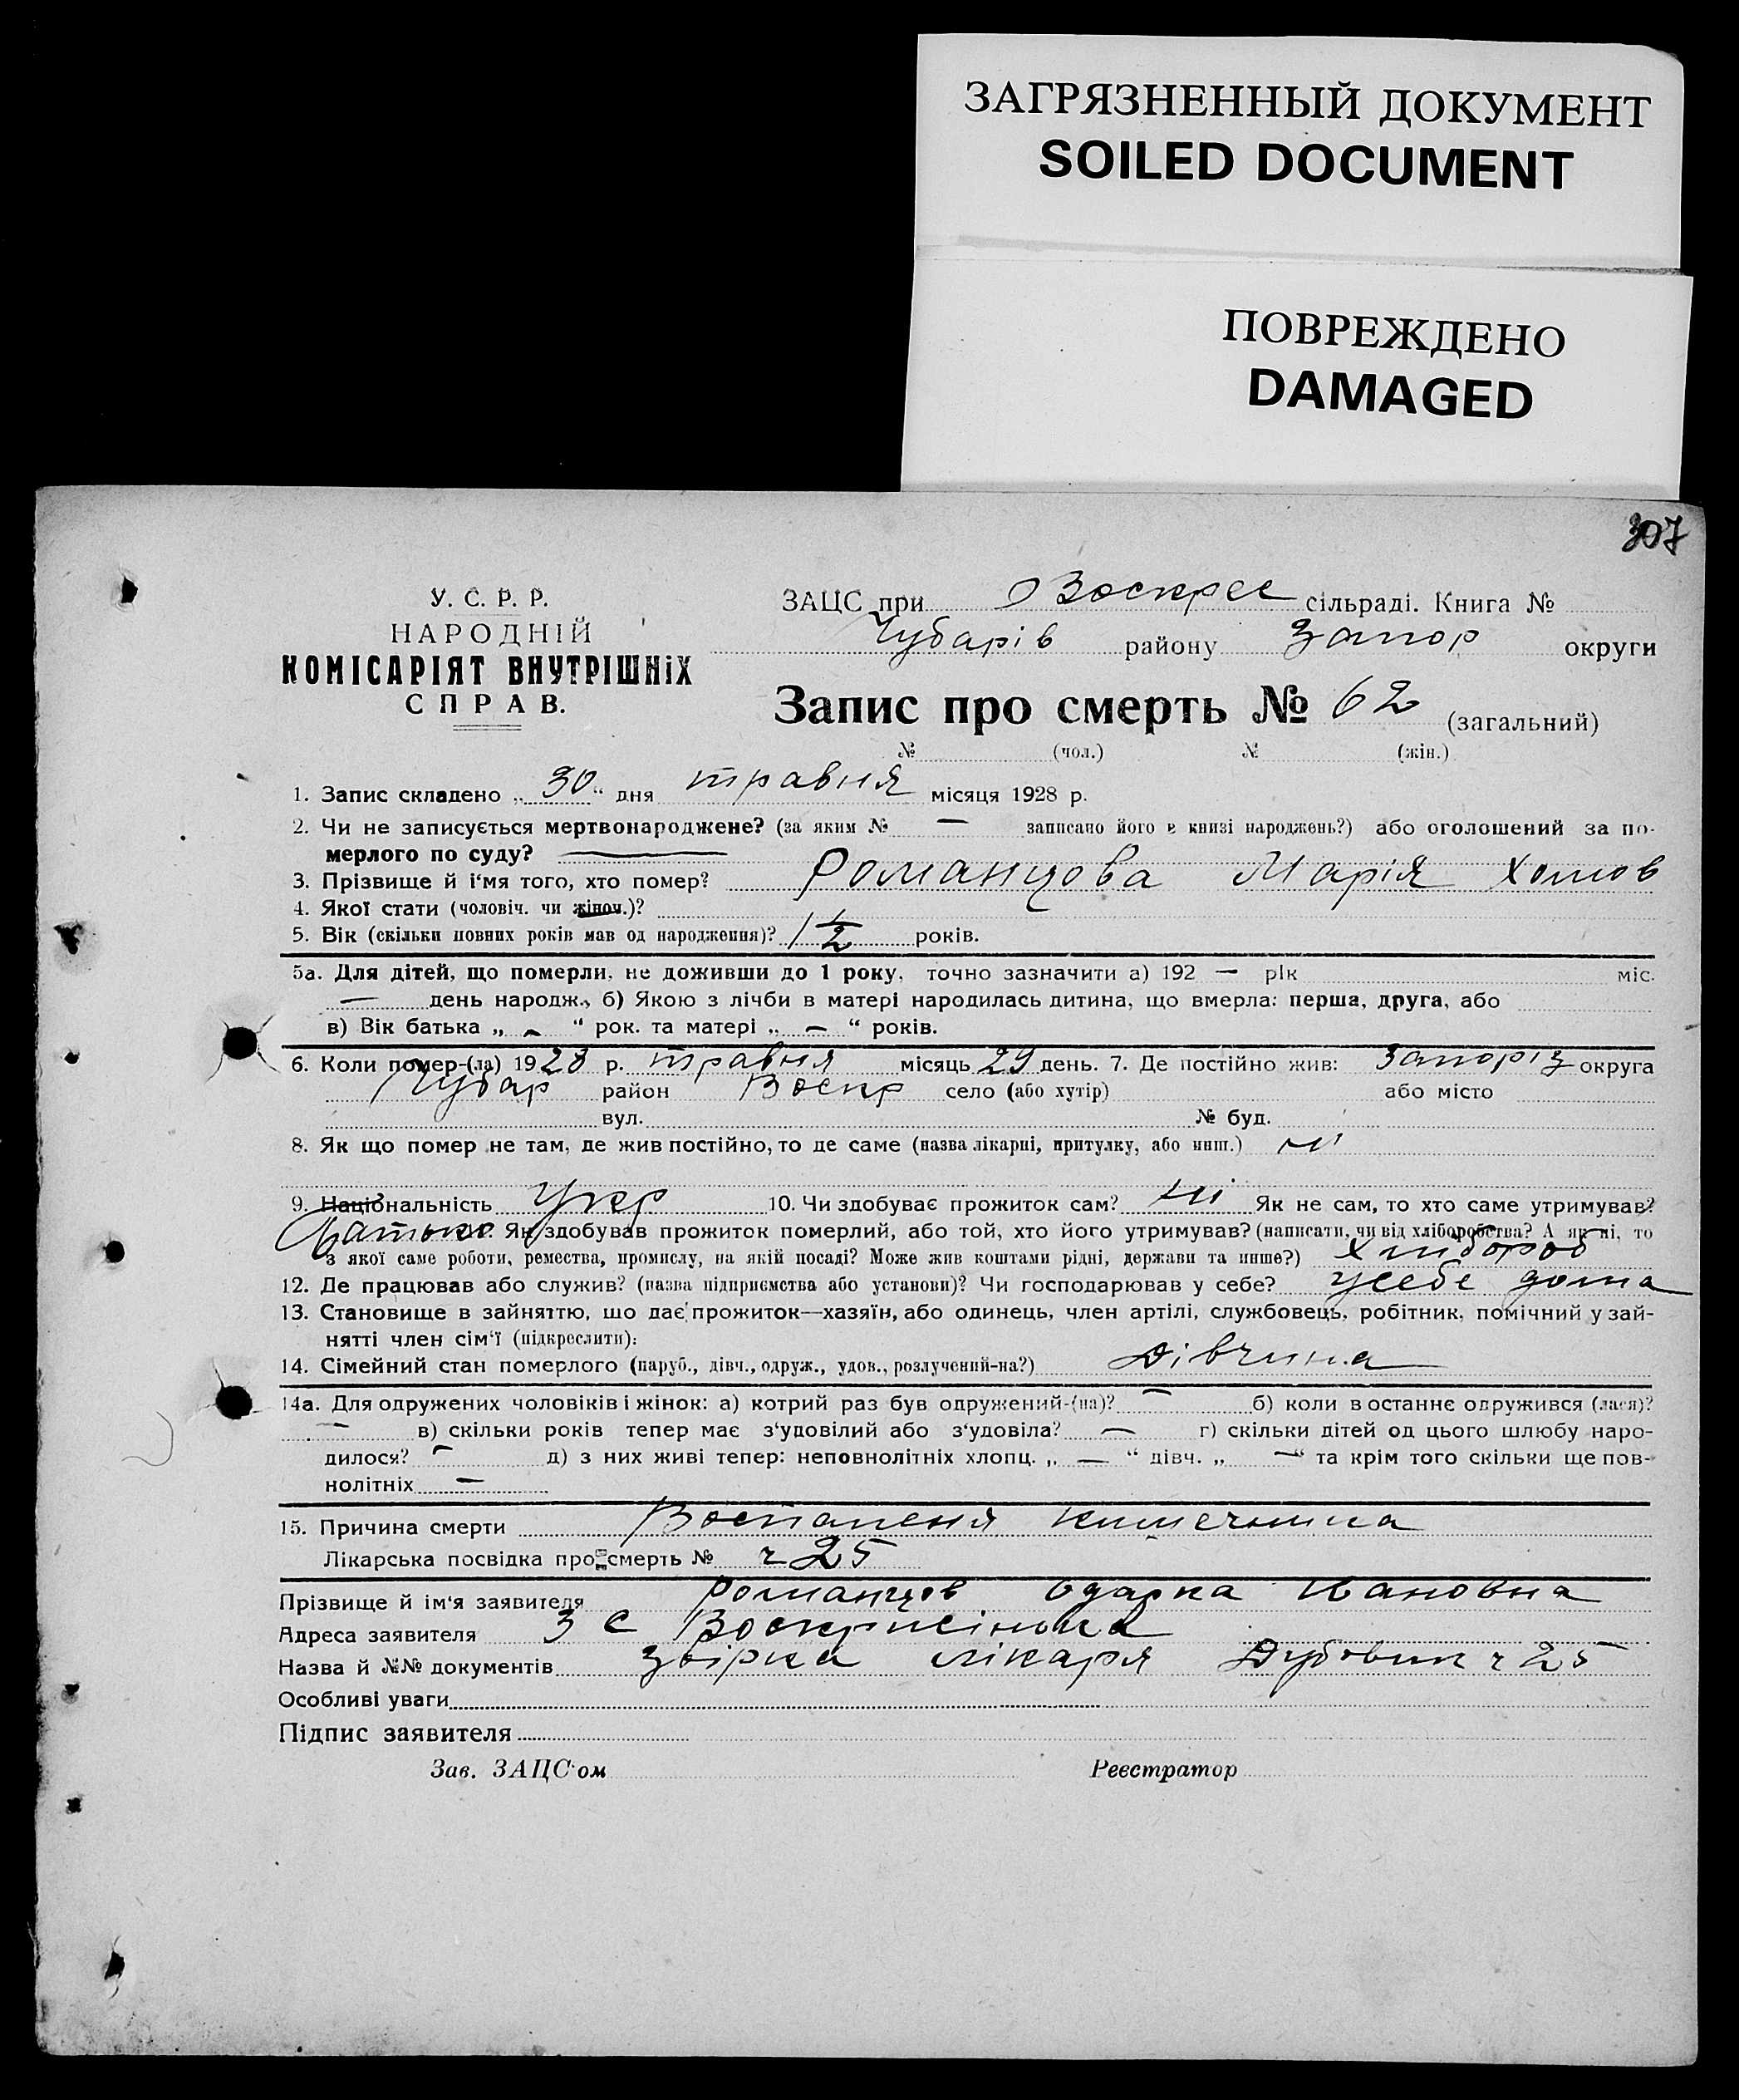 ЗАГРЯЗНЕННЫЙ ДОКУМЕНТ
SOILED DOCUMENT
ПОВРЕЖДЕНО
DAMAGED
307
У. С. Р. Р.
НАРОДНІЙ
КОМІСАРІЯТ ВНУТРІШНіХ
СПРАВ.
ЗАЦС при Воскрес сільраді. Книга №
Чубарів району Запор округи
Запис про смерть № 62 (загальний)
№ (чол.) № (жін.)
1. Запис складено „ 30 “ дня травня місяця 1928 р.
2. Чи не записується мертвонароджене? (за яким № — записано його в книзі народжень?) або оголошений за по-
мерлого по суду? —
3. Прізвище й і‘мя того, хто помер? Романцова Марія Хомов
4. Якої стати (чоловіч. чи жіноч.)?
5. Вік (скільки повних років мав од народження)? 1 1/2 років.
5а. Для дітей, що померли, не доживши до 1 року, точно зазначити а) 192 — рік міс.
— день народж., б) Якою з лічби в матері народилась дитина, що вмерла: перша, друга, або
в) Вік батька „ - “ рок. та матері „ — “ років.
6. Коли помер-(ла) 1928 р. травня місяць 29 день. 7. Де постійно жив: Запоріз округа
Чубар район Воскр село (або хутір) або місто
вул. № буд.
8. Як що помер не там, де жив постійно, то де саме (назва лікарні, притулку, або инш.)
9. Національність Укр 10. Чи здобуває прожиток сам? ні Як не сам, то хто саме утримував?
батько. Як здобував прожиток померлий, або той, хто його утримував? (написати, чи від хліборобства? А як ні, то
з якої саме роботи, ремества, промислу, на якій посаді? Може жив коштами рідні, держави та инше?) Хлибороб
12. Де працював або служив? (назва підприємства або установи)? Чи господарював у себе? усебе дома
13. Становище в зайняттю, що дає прожиток—хазяїн, або одинець, член артілі, службовець, робітник, помічний у зай-
нятті член сім‘ї (підкреслити):
14. Сімейний стан померлого (паруб., дівч., одруж., удов., розлучений-на?) Дівчина
14а. Для одружених чоловіків і жінок: а) котрий раз був одружений-(на)? — б) коли в останнє одружився (лася)?
— в) скільки років тепер має з‘удовілий або з‘удовіла? — г) скільки дітей од цього шлюбу наро-
дилося? - д) з них живі тепер: неповнолітніх хлопц. „ — “ дівч. „ — “ та крім того скільки ще пов-
нолітніх —
15. Причина смерти Воспаленя
Лікарська посвідка про смерть № ч 25
Прізвище й ім‘я заявителя Романцов Одарка Ивановна
Адреса заявителя З с
Назва й №№ документів лікаря Дубовик ч 25
Особливі уваги
Підпис заявителя
Зав. ЗАЦС‘ом Реєстратор